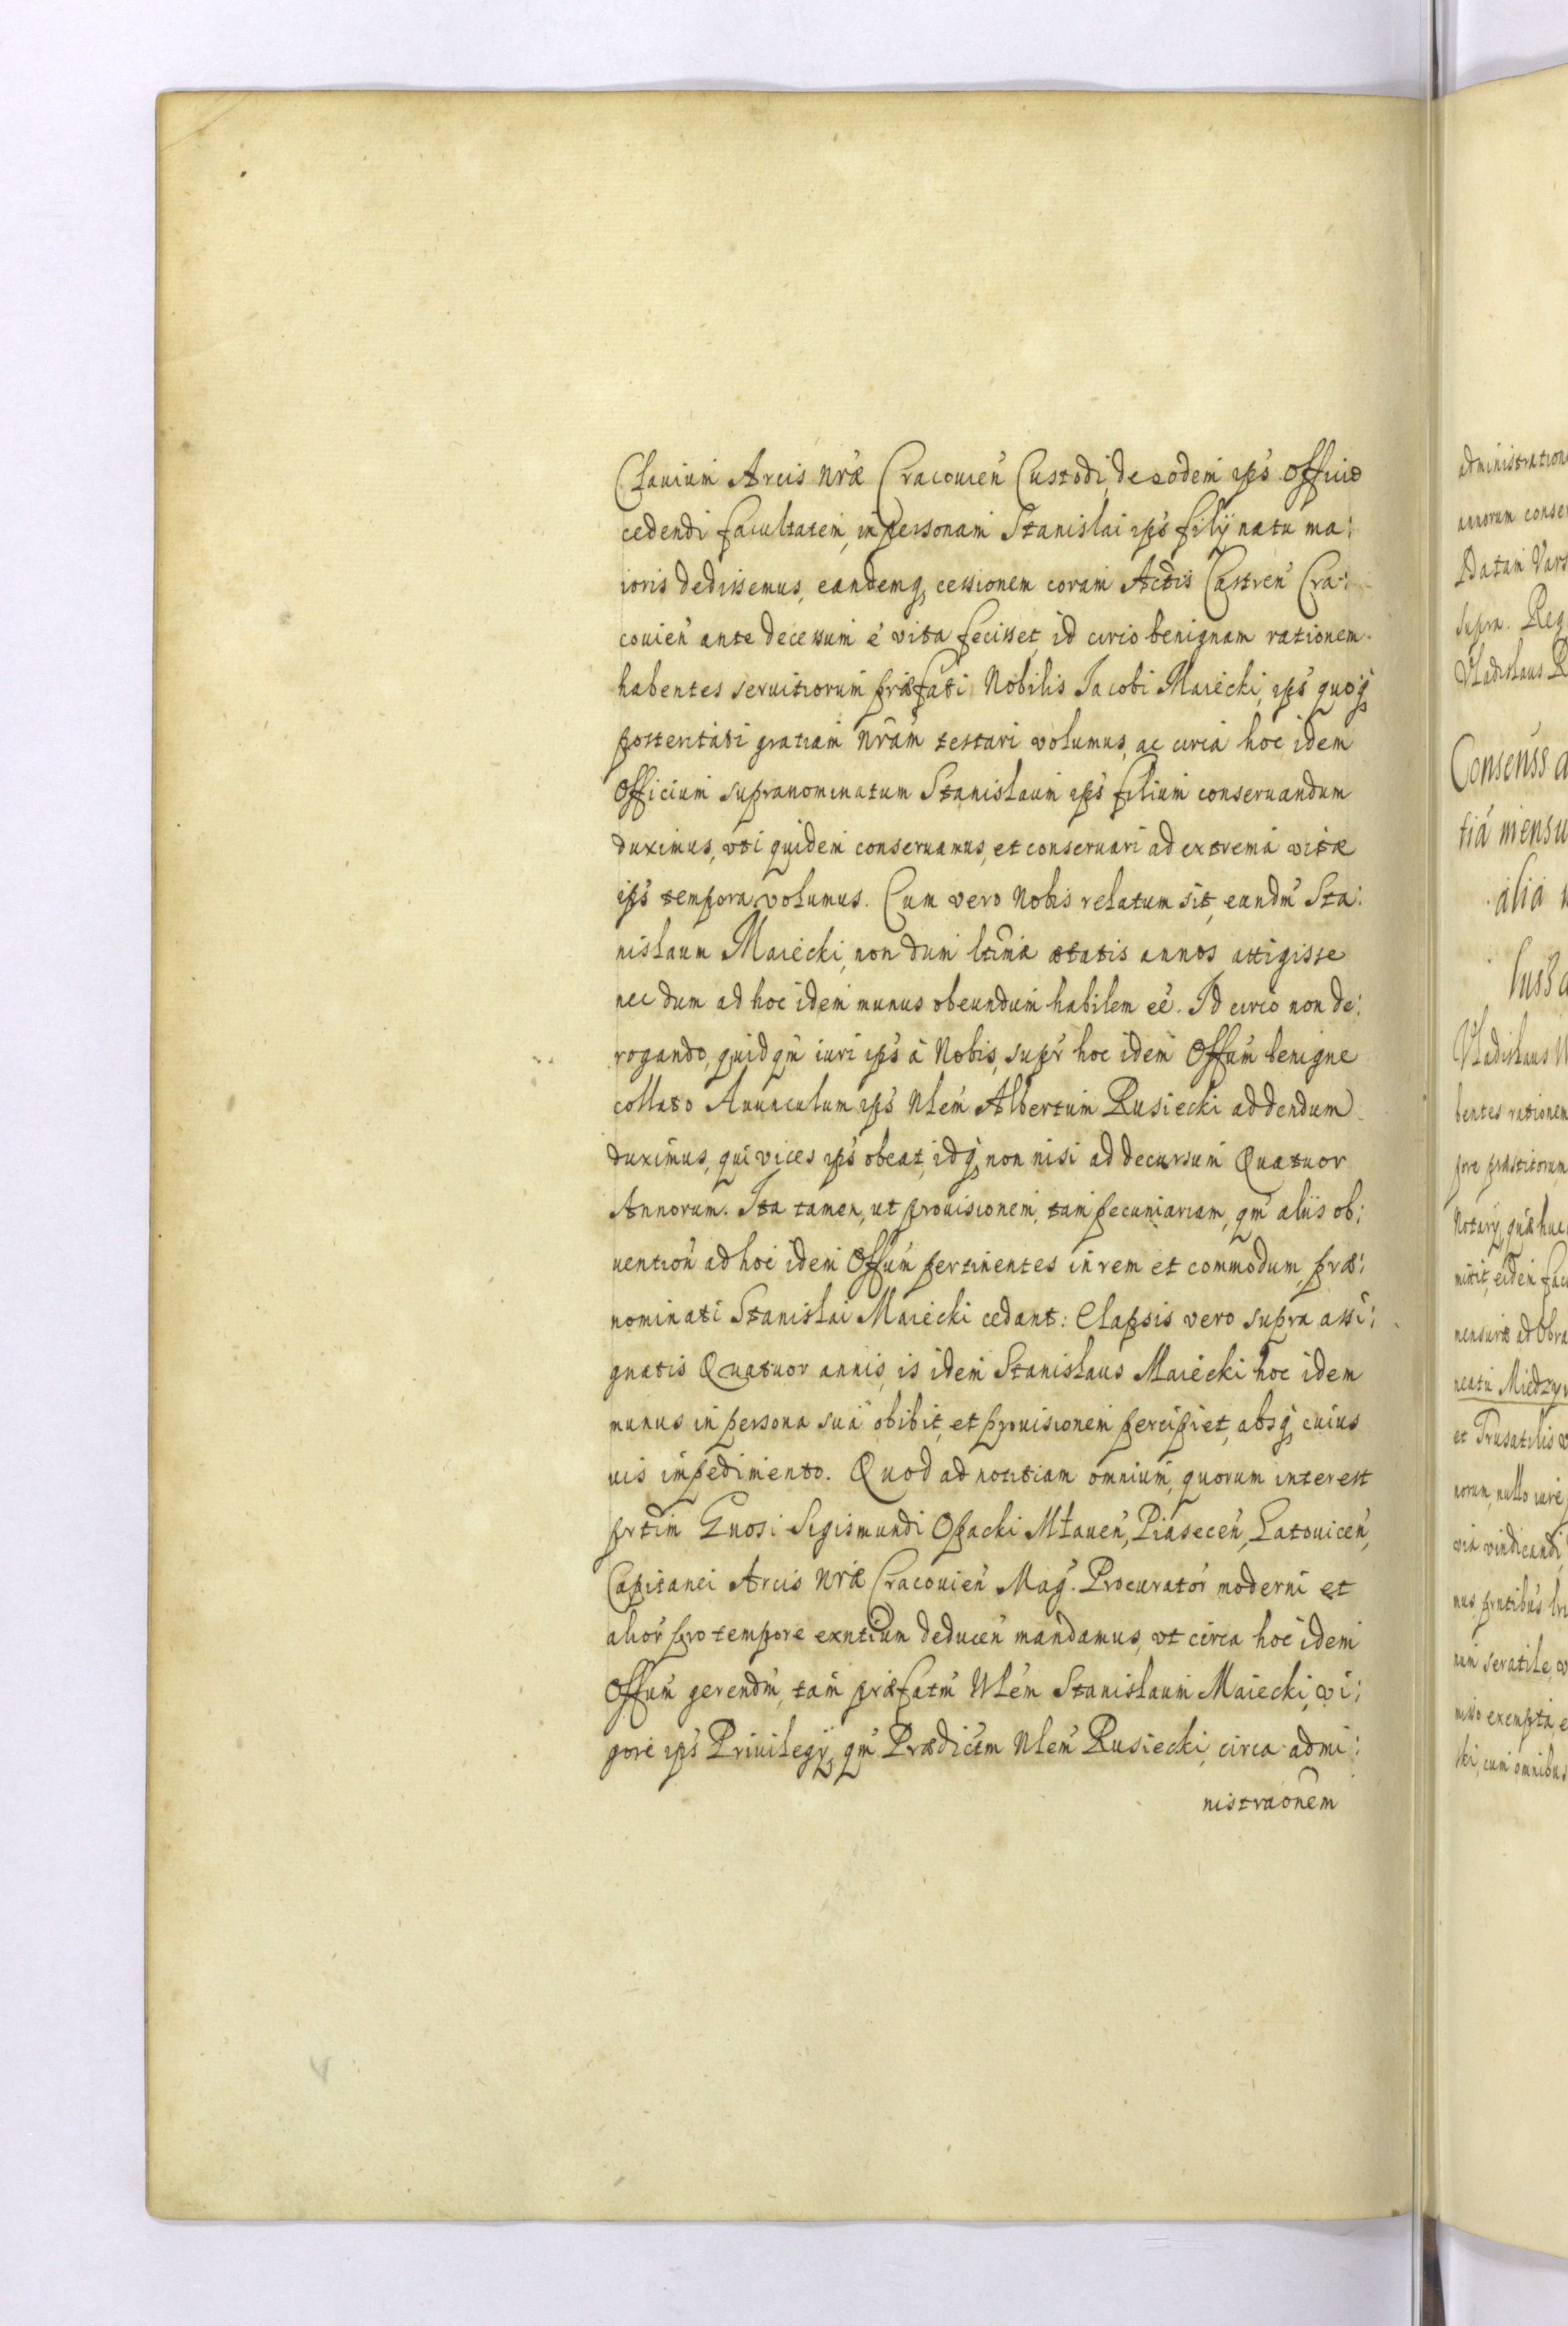 Clauium Arcis nrae Cracouien Custodi, de eodem ips Officio
cedendi facultatem, in personam Stanislai ips filij natu ma:
ioris dedissemus, eandemq, cessionem coram Actis Castren Cra:
couien ante decessum è vita fecisset, id circo benignam rationem
habentes seruitiorum praefati Nobilis Jacobi Maiecki, ips quoq
posteritati gratiam nram testari volumus, ac circa hoc idem
Officium supranominatum Stanislaum ips filium conseruandum
duximus, vti quidem conseruamus, et conseruari ad extrema vitae
ips tempora volumus. Cum vero Nobis relatum sit, eandm Sta:
nislaum Maiecki, non dum ltima aetatis annos attigisse
nec dum ad hoc idem munus obeundum habilem ee. Id circo non de:
rogando, quidqm iuri ips à Nobis, supr hoc idem Offum benigne
collato Auunculum ips Nlem Albertum Rusiecki addendum
duximus, qui vices ips obeat, idq, non nisi ad decursum Quatuor
Annorum. Ita tamen, ut prouisionem, tam pecuniariam, qm aliis ob:
uention ad hoc idem Offum pertinentes in rem et commodum, prae:
nominati Stanislai Maiecki cedant: Elapsis vero supra assi:
gnatis Quatuor annis, is idem Stanislaus Maiecki hoc idem
munus in persona sua obibit, et prouisionem percipiet, absq, cuius
uis impedimento. Quod ad notitiam omnium, quorum interest
prtim Gnosi Sigismundi Opacki Mławen, Piasecen, Latouicen,
Capitanei Arcis nrae Cracouien Mag. Procurator moderni et
alior pro tempore exntium deducen mandamus, vt circa hoc idem
Offum gerendm, tam praefatm Nlem Stanislaum Maiecki, vi:
gore ips Priuilegij, qm Praedictm Nlem Rusiecki, circa admi:
nistraonem
administration
annorum conser
Datam Vars
supra. Reg
Vladislaus R
Consenss a
tia mensu
alia
Iussa
Vladislaus
bentes rationem
pore praestitorum
Notarij, quae huc
mittit, eidem facu
mensurae ad Obra
neatu Miedzy
et Trusatilis
uorum, nullo iure
via vindicandi
mus, prntibus
num seratile
misso exempta
ski, cum omnibus